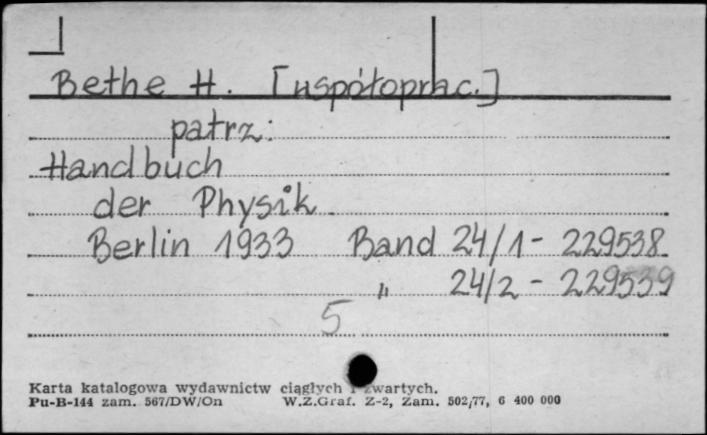 Bethe H. [współoprac.]
patrz:
Handbuch
der Physik.
Berlin 1933 Band 24/1 - 229538
" 24/2 - 229539
5
Karta katalogowa wydawnictw ciągłych i zwartych.
Pu-B-144 zam. 567/DW/On W.Z.Graf. Z-2, Zam. 502/77, 6 400 000